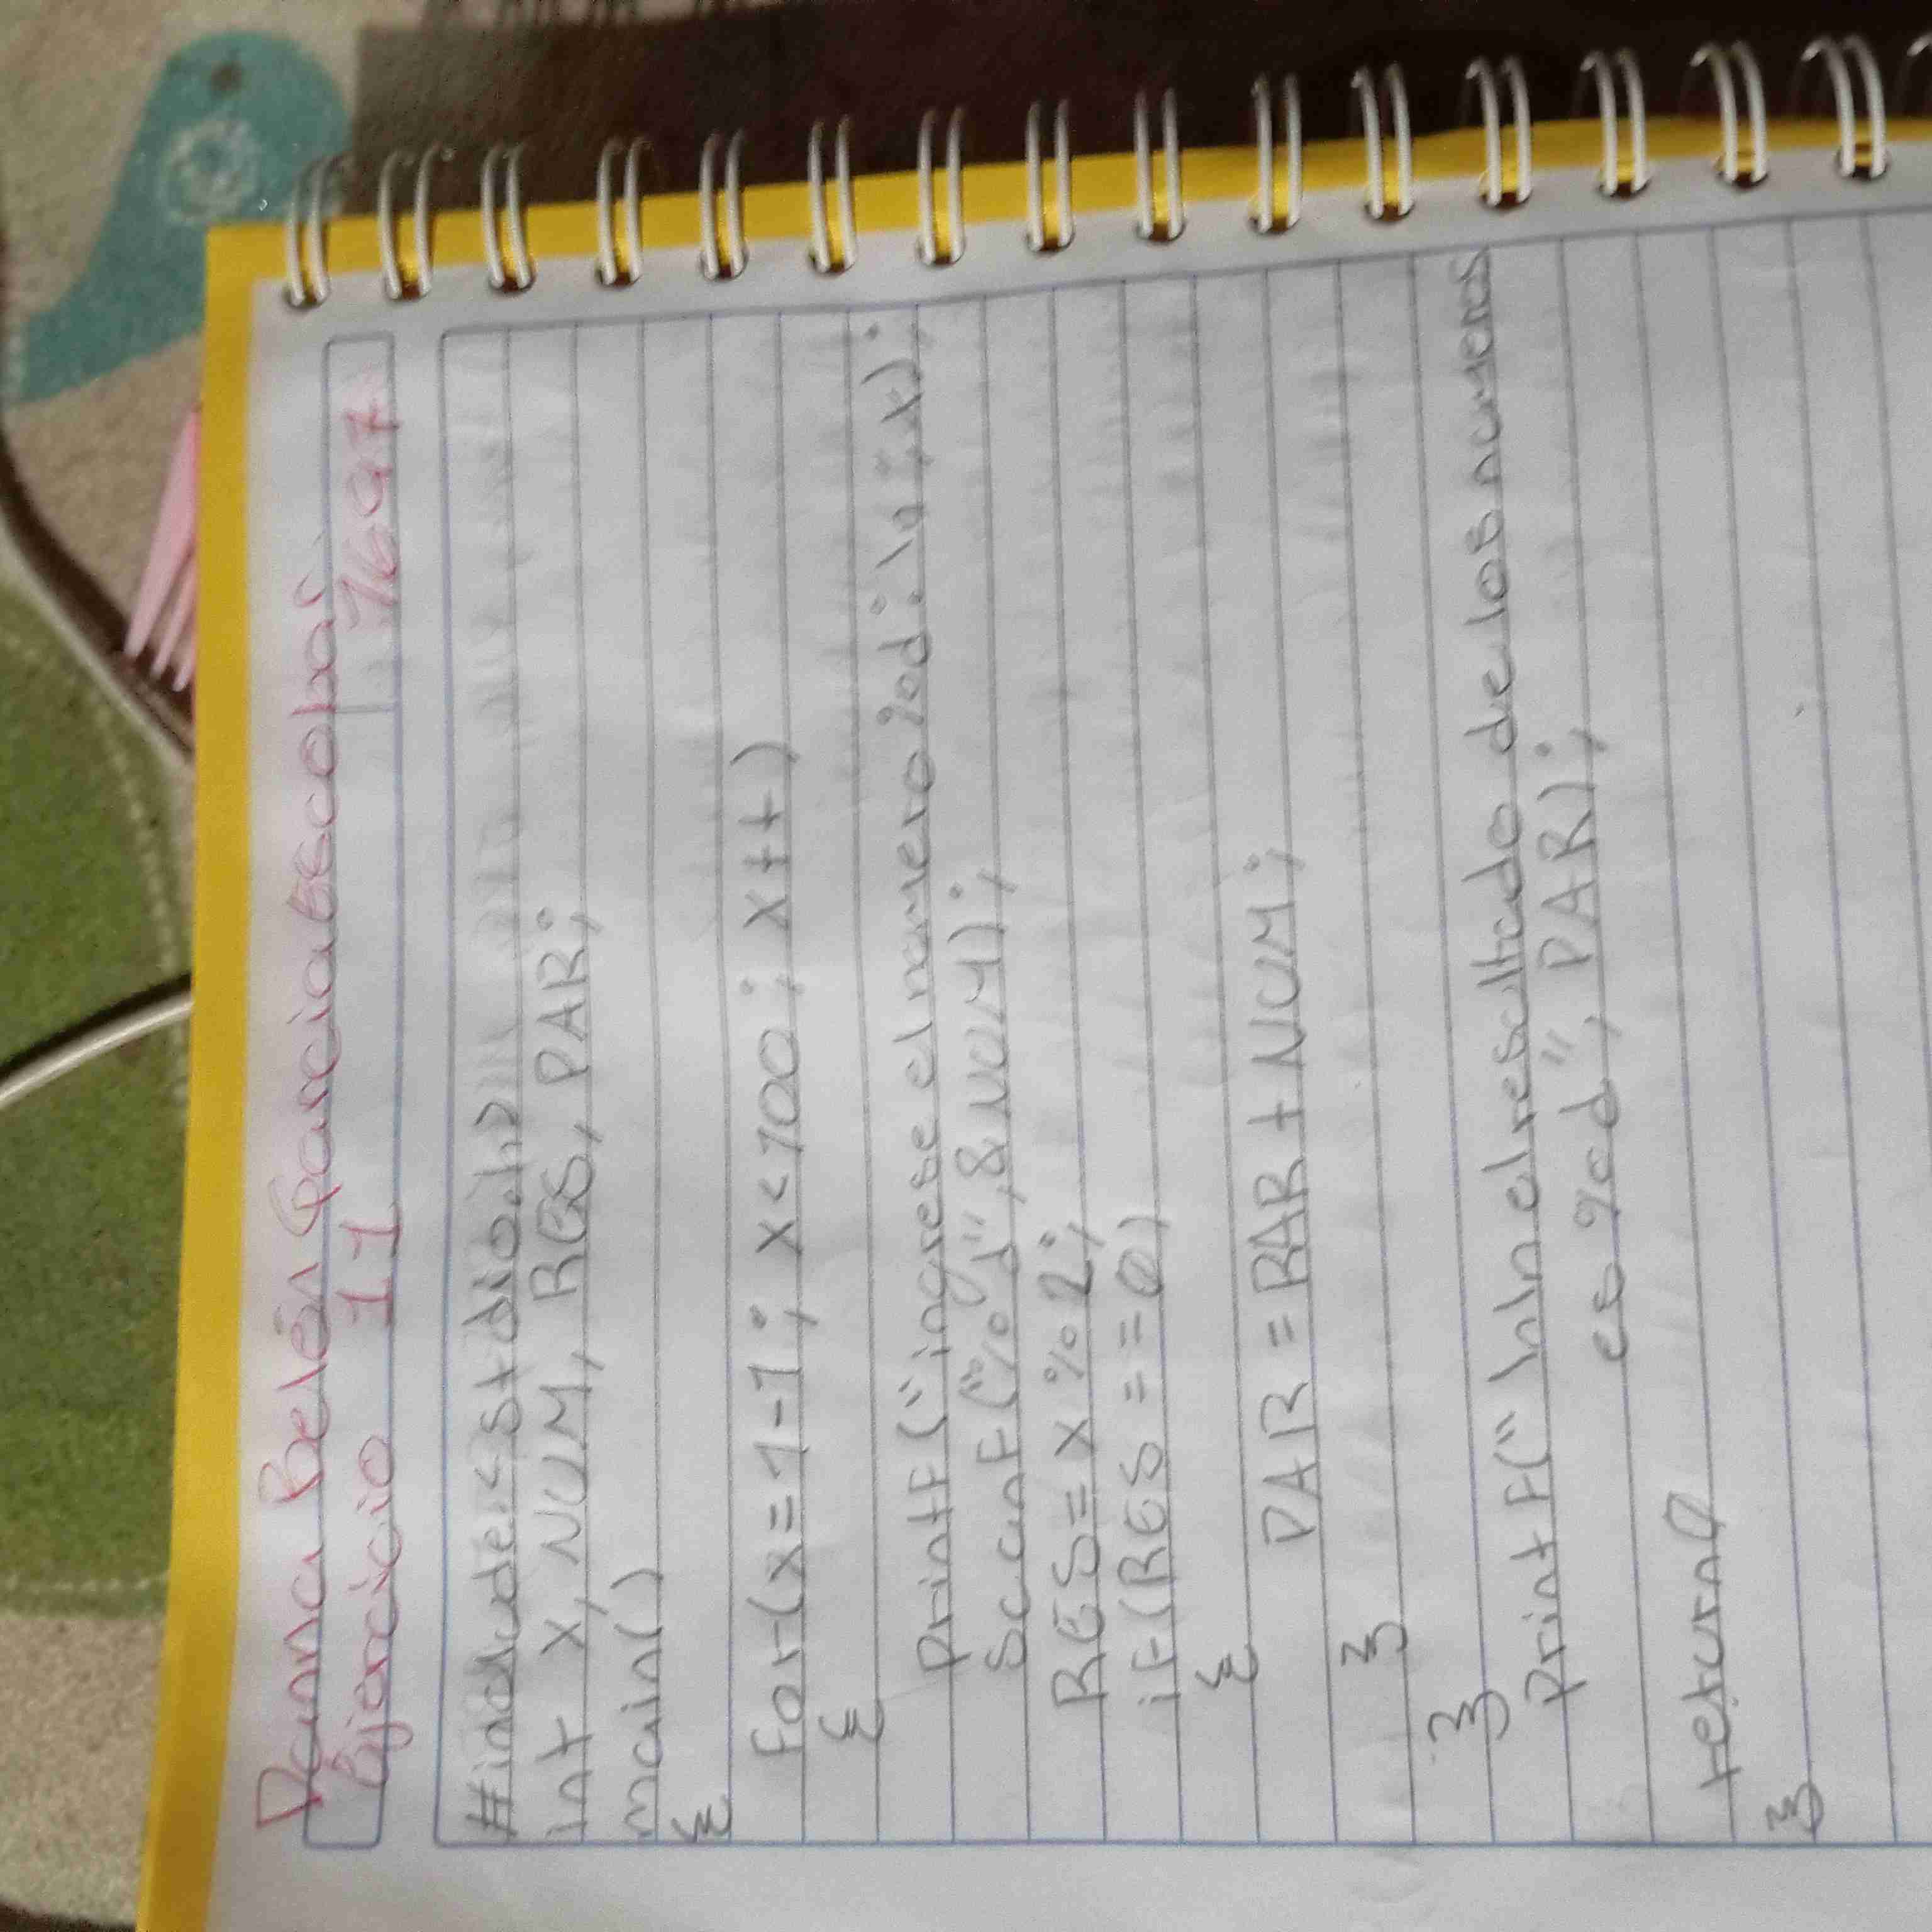 Danna Belén García Escobar
Ejercicio 11 1697
#include<stdio.h>
int x, NUM, RES, PAR;
main()
{
for(x=1-1; x<100; x++)
{
printf("ingrese el numero %d:\n",x);
Scanf("%d",&NUM);
RES=x%2;
if(RES==0)
{
PAR=PAR+NUM;
}
}
printf("\n\n el resultado de los numeros
es %d", PAR);
return0
}